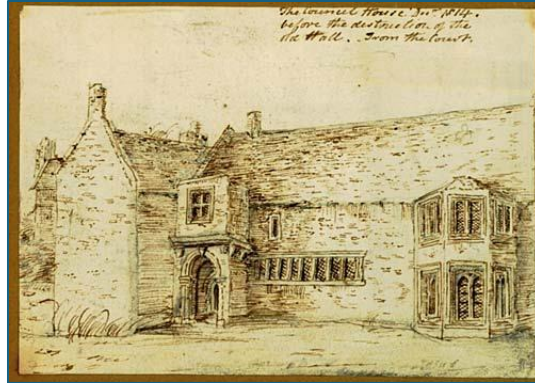 The Council House Dec.r 1814.
before the destruction of the
old Hall. From the Court.